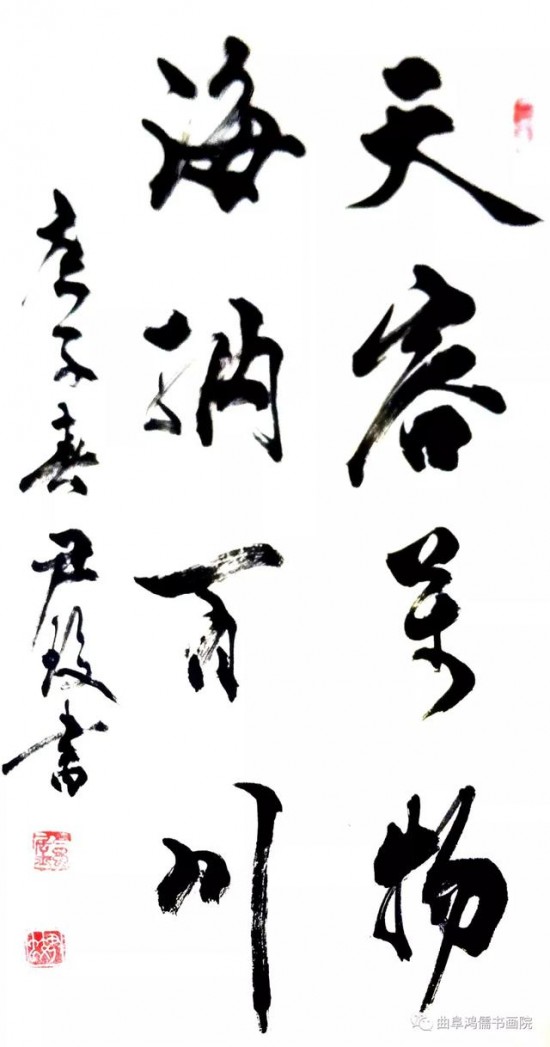 天容万物
海纳百川
庚子春 尹玫书
曲阜鸿儒书画院